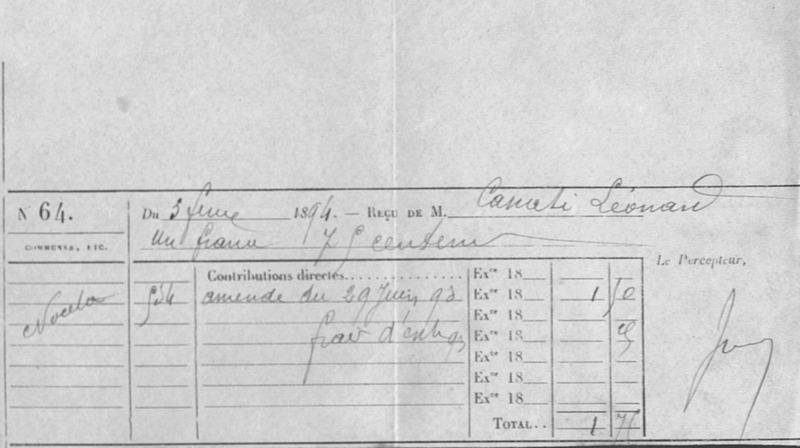 N 64.
Du 3 1894. — REÇU DE M. Casuati Léonard
Un franc 75 centimes
COMMUNES, ETC.
Le Percepteur,
Contributions directes Ex^ce 18
Noceta 534 amende du 29 Juin 93 Ex^ce 18 1 50
Ex^ce 18
frais d' Ex^ce 18 25
Ex^ce 18
Ex^ce 18
Ex^ce 18
TOTAL.. 1 75